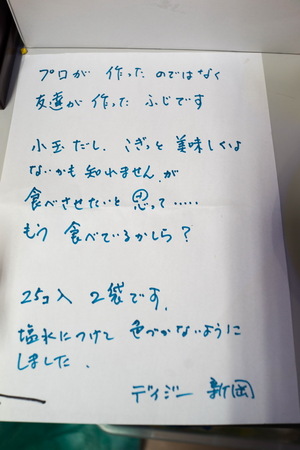 プロが 作ったのではなく
友達が 作った ふじです
小玉だし、こざっと 美味しくは
ないかも 知れません が
食べさせたいと 思って……
もう 食べているかしら?
25コ入 2袋です.
塩水につけて 色づかないように
しました.
デイジー 新岡